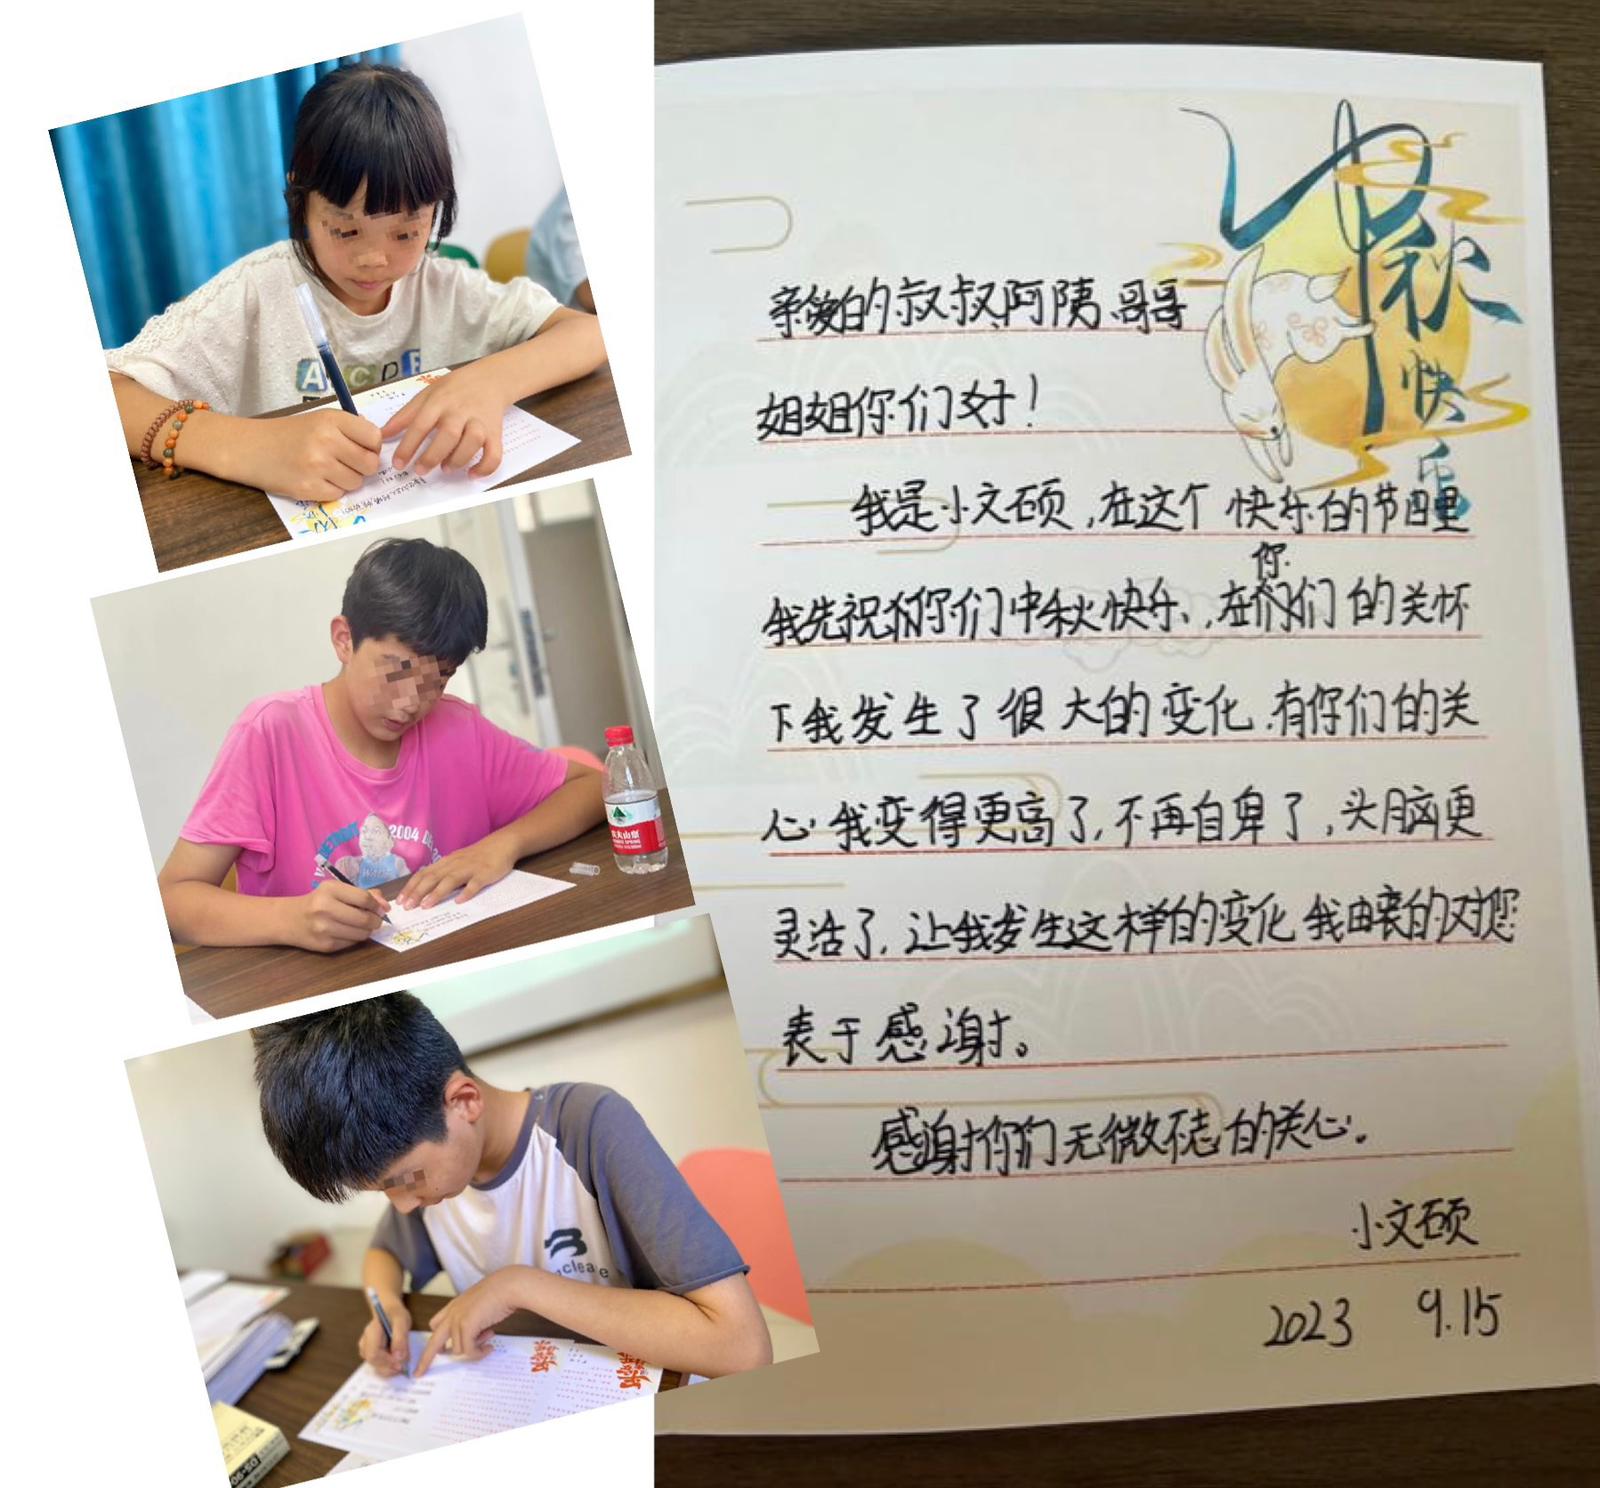 中秋
快乐
亲爱的叔叔、阿姨、哥哥
姐姐你们好！
我是小文硕，在这个快乐的节日里
我先祝你们中秋快乐、,在你们的关怀
下我发生了很大的变化.有你们的关
心.我变得更高了,不再自卑了,头脑更
灵活了,让我发生这样的变化我由衷的对您
表于感谢。
感谢你们无微不志的关心。
小文硕
2023 9.15
ABCDE
DETROIT
2004
WALLACE
农夫山泉
clea e